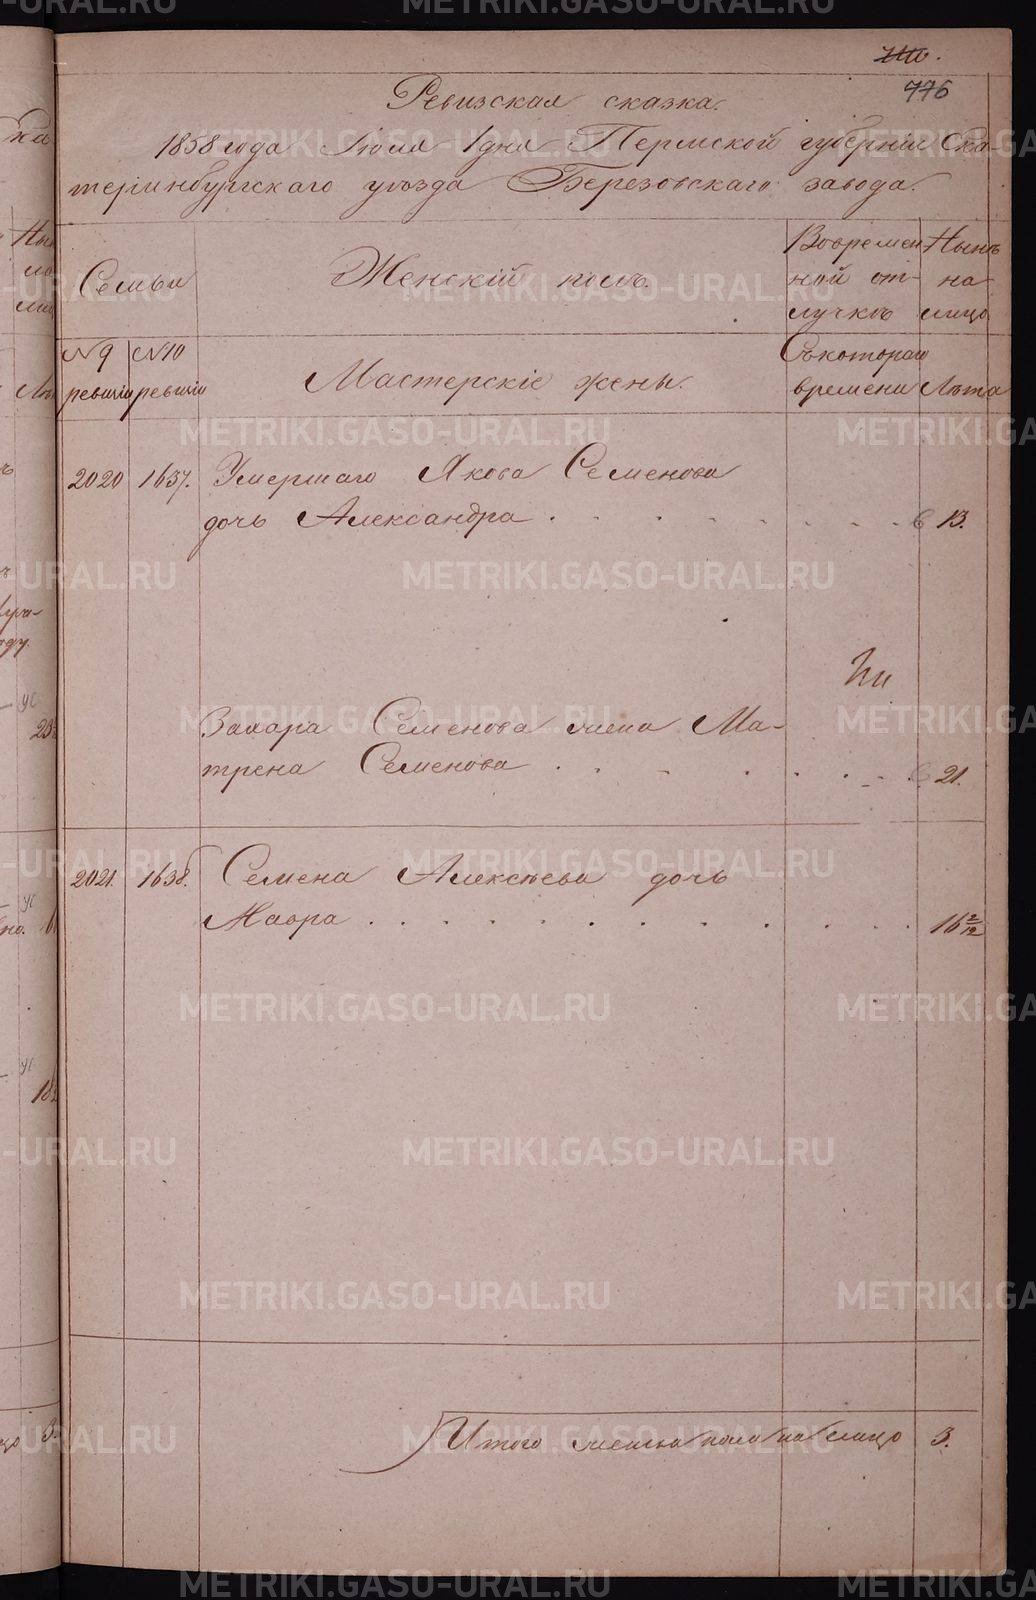 776
Ревизская сказка.
1858 года Июля 1 дня Пермской губернiи Ека-
теринбургскаго уѣзда Березовскаго завода.
Семьи
Женскiй полъ.
Вовремен
ной от-
лучкѣ
Нынѣ
на
лицо
№ 9
ревизiи
№ 10
ревизiи
Мастерскiе жены.
Съкотораго
времени
Лѣта
2020 1637. Умершаго Якова Семенова
дочь Александра . . . . . . . . . 13.
Захара Семенова жена Ма-
трена Семенова . . . . . . . . 21.
2021. 1638. Семена Алексѣева дочь
Мавра . . . . . . . . . . 16 2/12
Итого женска пола на лицо 3.
METRIKI.GASO-URAL.RU